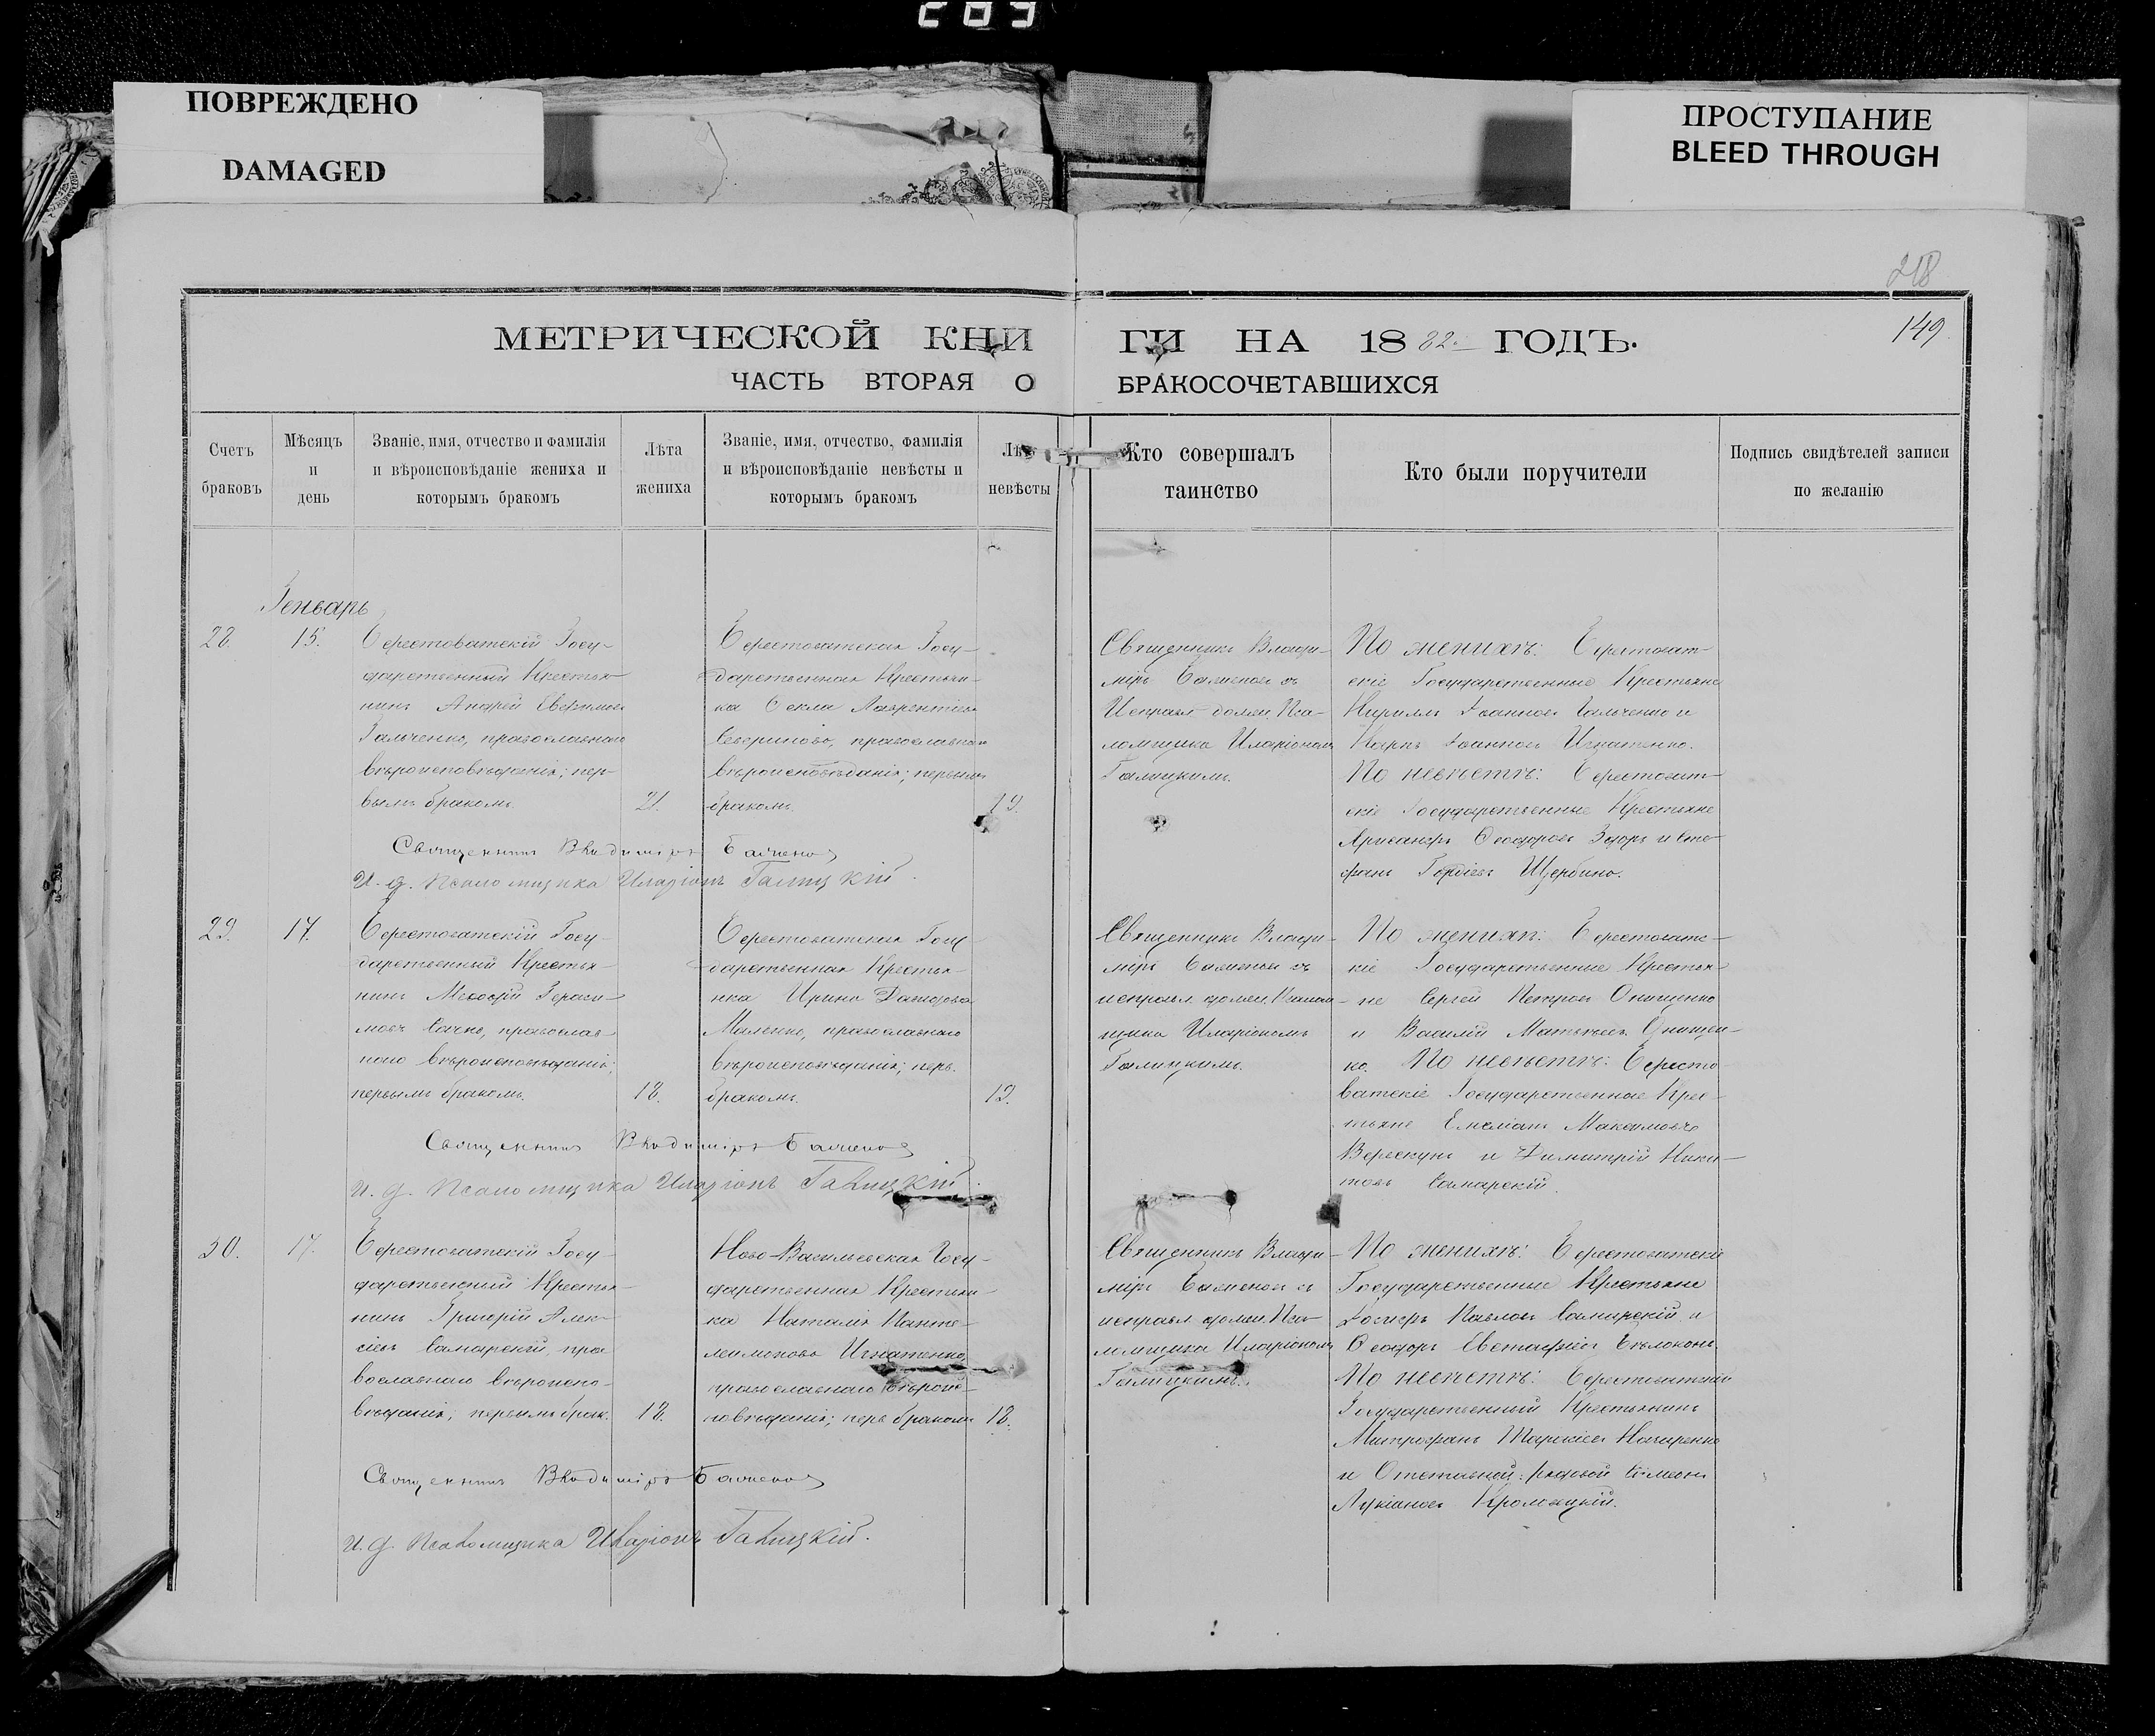 203
ПОВРЕЖДЕНО
DAMAGED
ПРОСТУПАНИЕ
BLEED THROUGH
218
149
МЕТРИЧЕСКОЙ КНИ
ГИ НА 1882 ГОДЪ.
ЧАСТЬ ВТОРАЯ О
БРАКОСОЧЕТАВШИХСЯ
Счетъ браковъ
Мѣсяцъ и день
Званіе, имя, отчество и фамилія и вѣроисповѣданіе жениха и которымъ бракомъ
Лѣта жениха
Званіе, имя, отчество, фамилія и вѣроисповѣданіе невѣсты и которымъ бракомъ
невѣсты
Кто совершалъ таинство
Кто были поручители
Подпись свидѣтелей записи по желанію
Генварь
28.
15.
Берестоватскій Госу-
дарственный Крестья-
нинъ Андрей Евфимовъ
Гальченко, православнаго
вѣроисповѣданія; пер-
вымъ бракомъ.
21.
Берестоватская Госу-
дарственная Крестьян-
ка Ѳекла Лаврентіева
православнаго
вѣроисповѣданія; первымъ
бракомъ.
19.
Священникъ Влади-
міръ Баженовъ съ
Исправл. должн. Пса-
ломщика Иларіономъ
Галицкимъ.
По женихѣ: Берестоват-
скіе Государственные Крестьяне
Кириллъ Іоанновъ Гальченко и
Карпъ Іоанновъ Игнатенко.
По невѣстѣ: Берестоват-
скіе Государственные Крестьяне
Ѳеодоровъ и Сте-
фанъ Гордіевъ Щербина.
Священникъ Владиміръ Баженовъ
И. д. Псаломщика Иларіонъ Галицкій.
29.
17.
Берестоватскій Госу-
дарственный Крестья-
нинъ Меѳодій Гераси-
мовъ православ-
наго вѣроисповѣданія;
первымъ бракомъ.
18.
Берестоватская Госу-
дарственная Крестья-
нка Ирина Давидова
Маленко, православнаго
вѣроисповѣданія; перв.
бракомъ.
19.
Священникъ Влади-
міръ Баженовъ съ
исправл. должн. Псалом-
щика Иларіономъ
Галицкимъ.
По женихѣ: Берестоватс-
кіе Государственные Крестья-
не Сергей Петровъ Онищенко
и Василій Матвѣевъ Онищен-
ко. По невѣстѣ: Бересто-
ватскіе Государственные Крес-
тьяне Емеліанъ Максимовъ
Верескунъ и Димитрій Ники-
товъ Самарскій.
Священникъ Владиміръ Баженовъ
И. д. Псаломщика Иларіонъ Галицкій.
30.
17.
Берестоватскій Госу-
дарственный Крестья-
нинъ Григорій Алек-
сіевъ Самарскій, пра-
вославнаго вѣроиспо-
вѣданія; первымъ брак.
18.
Ново-Васильевская Госу-
дарственная Крестьян-
ка Наталія Панте-
леимонова Игнатенко,
православнаго вѣроис-
повѣданія; перв. бракомъ
18.
Священникъ Влади-
міръ Баженовъ съ
исправл. должн. Пса-
ломщика Иларіономъ
Галицкимъ.
По женихѣ: Берестоватскіе
Государственные Крестьяне
Іосифъ Павловъ Самарскій и
Ѳеодоръ Евстафіевъ Бѣлоконь.
По невѣстѣ: Берестоватскій
Государственный Крестьянинъ
Митрофанъ
и Отставной рядовой Симеонъ
Лукіановъ
Священникъ Владиміръ Баженовъ
И. д. Псаломщика Иларіонъ Галицкій.